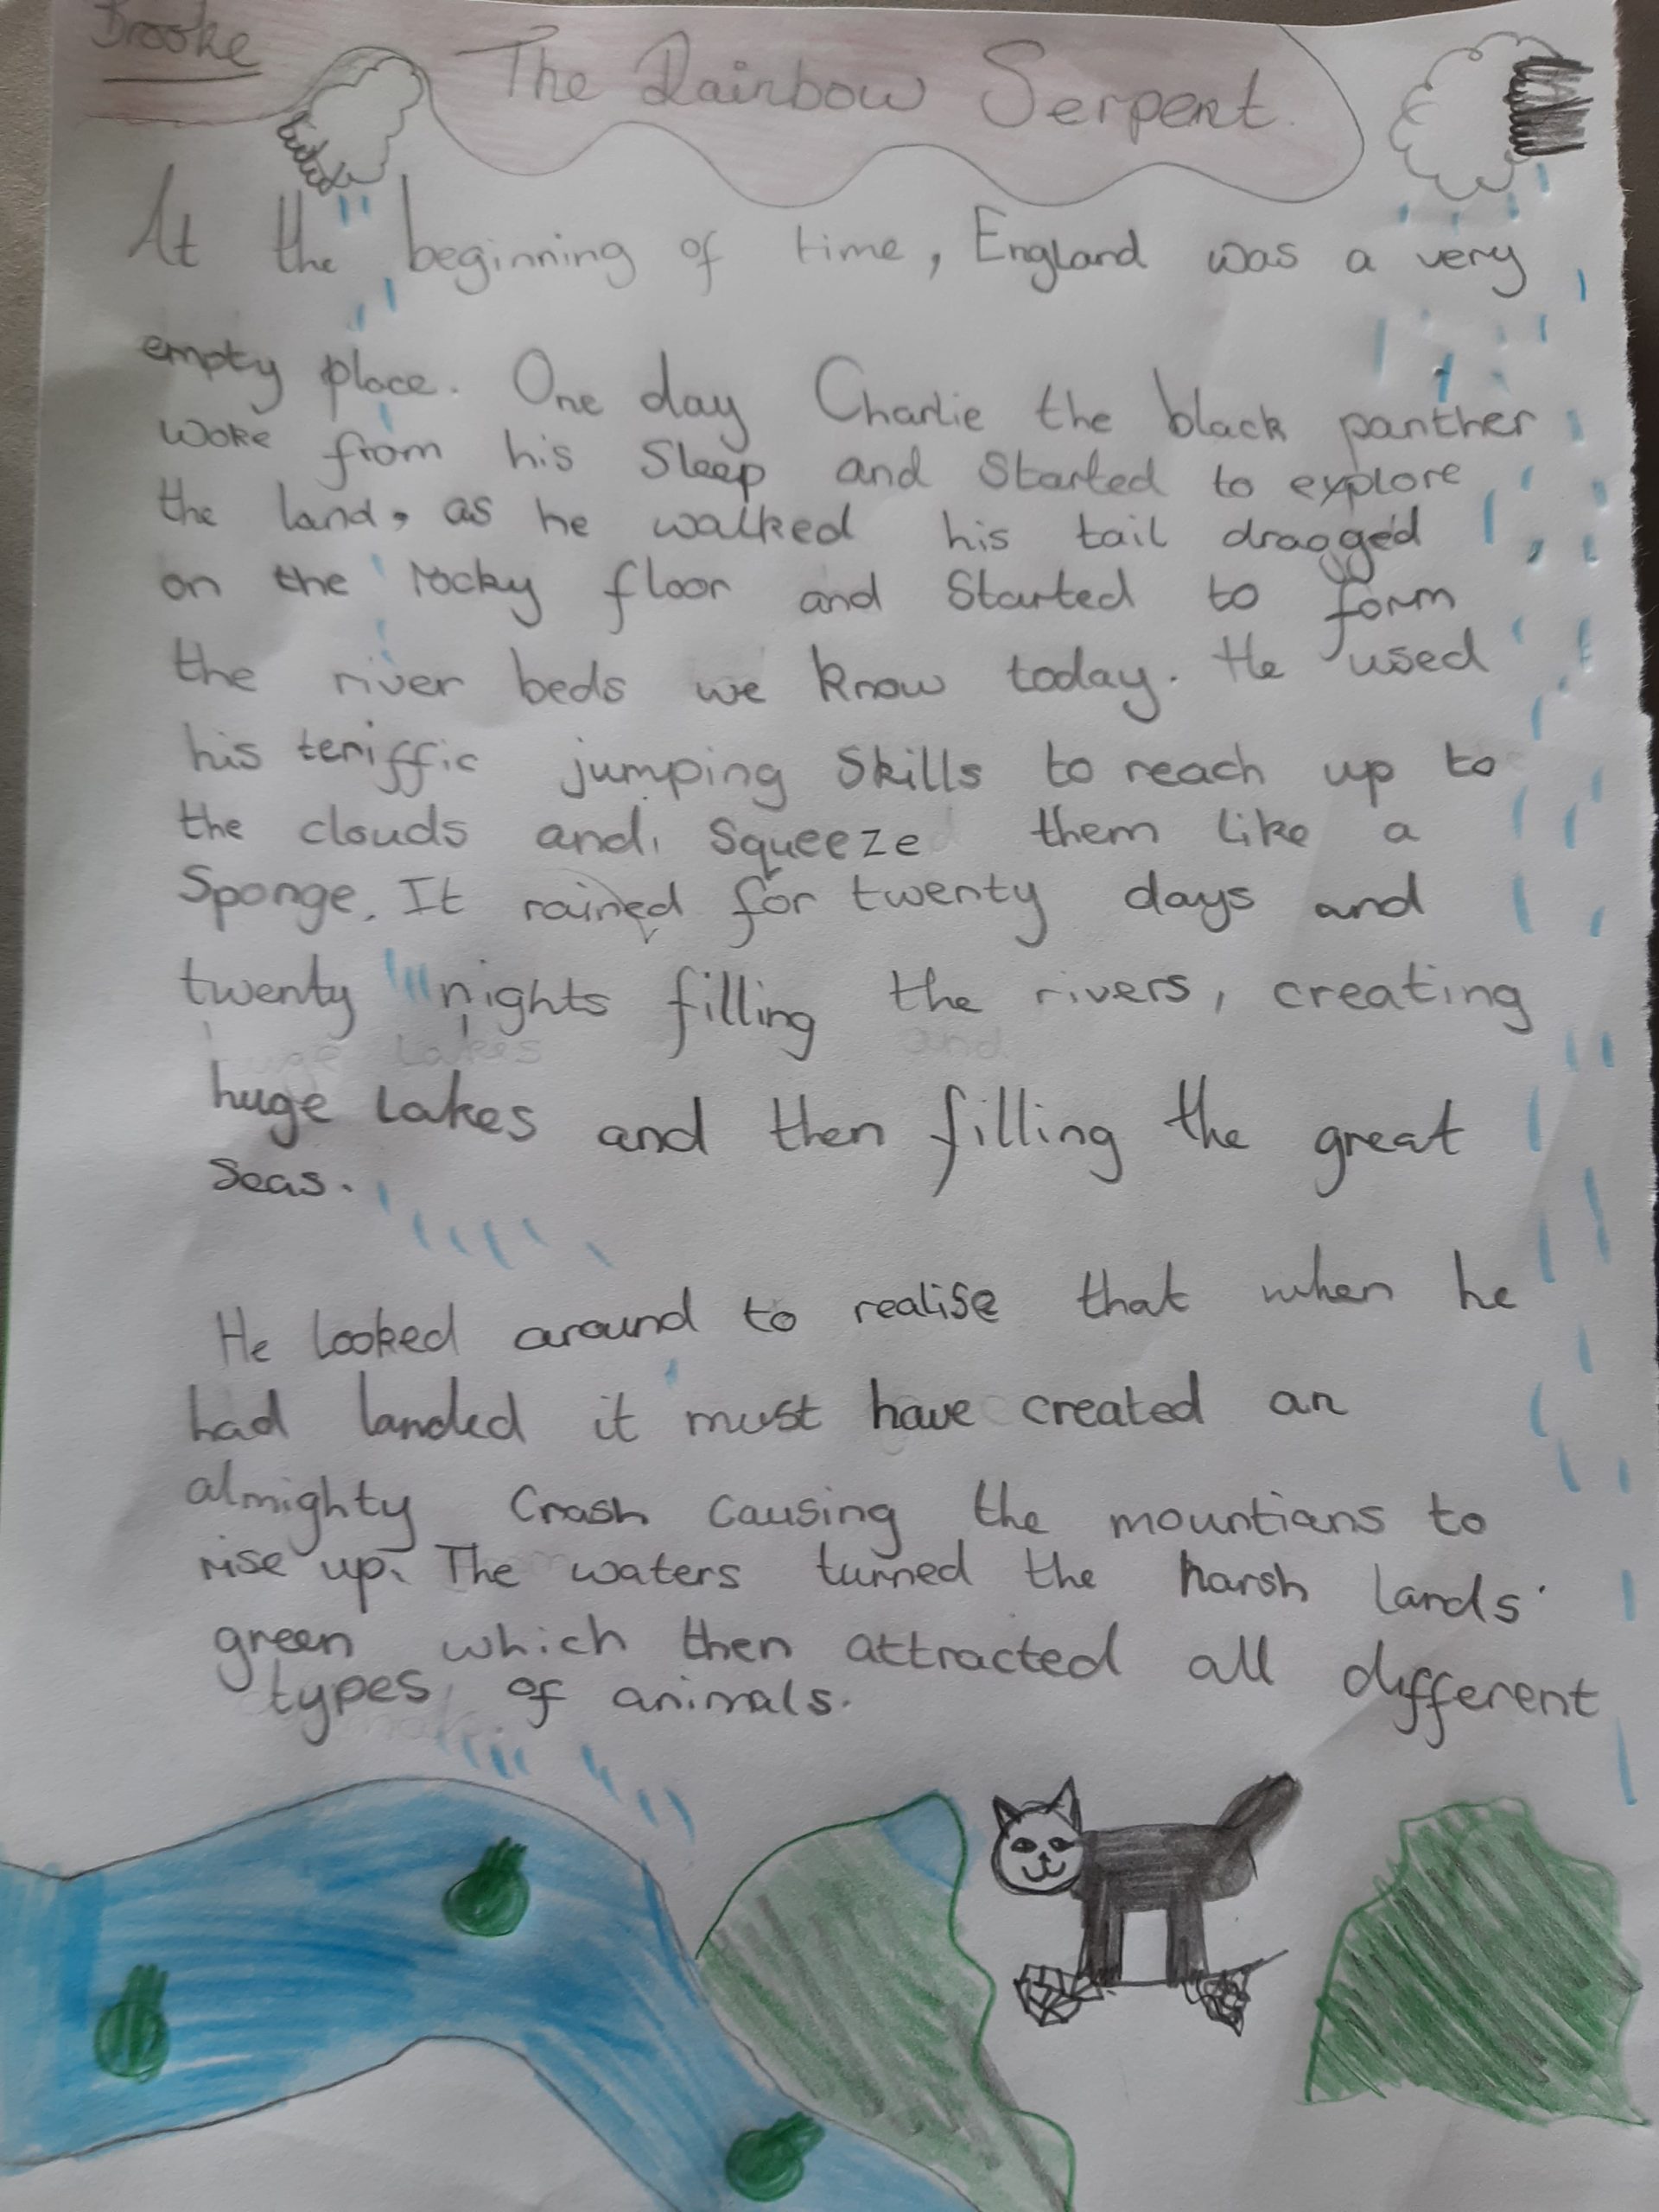 Brooke
The Rainbow Serpent.
At the beginning of time, England was a very
empty place. One day Charlie the black panther
woke from his Sleep and Started to explore
the land, as he walked his tail dragged
on the rocky floor and Started to form
the river beds we know today. He used
his teriffic jumping Skills to reach up to
the clouds and, Squeeze them like a
Sponge. It rained for twenty days and
twenty nights filling the rivers, creating
huge lakes and
huge Lakes and then filling the great
Seas.
He looked around to realise that when he
had landed it must have created an
almighty Crash Causing the mountians to
rise up. The waters turned the harsh lands
green which then attracted all different
types of animals.